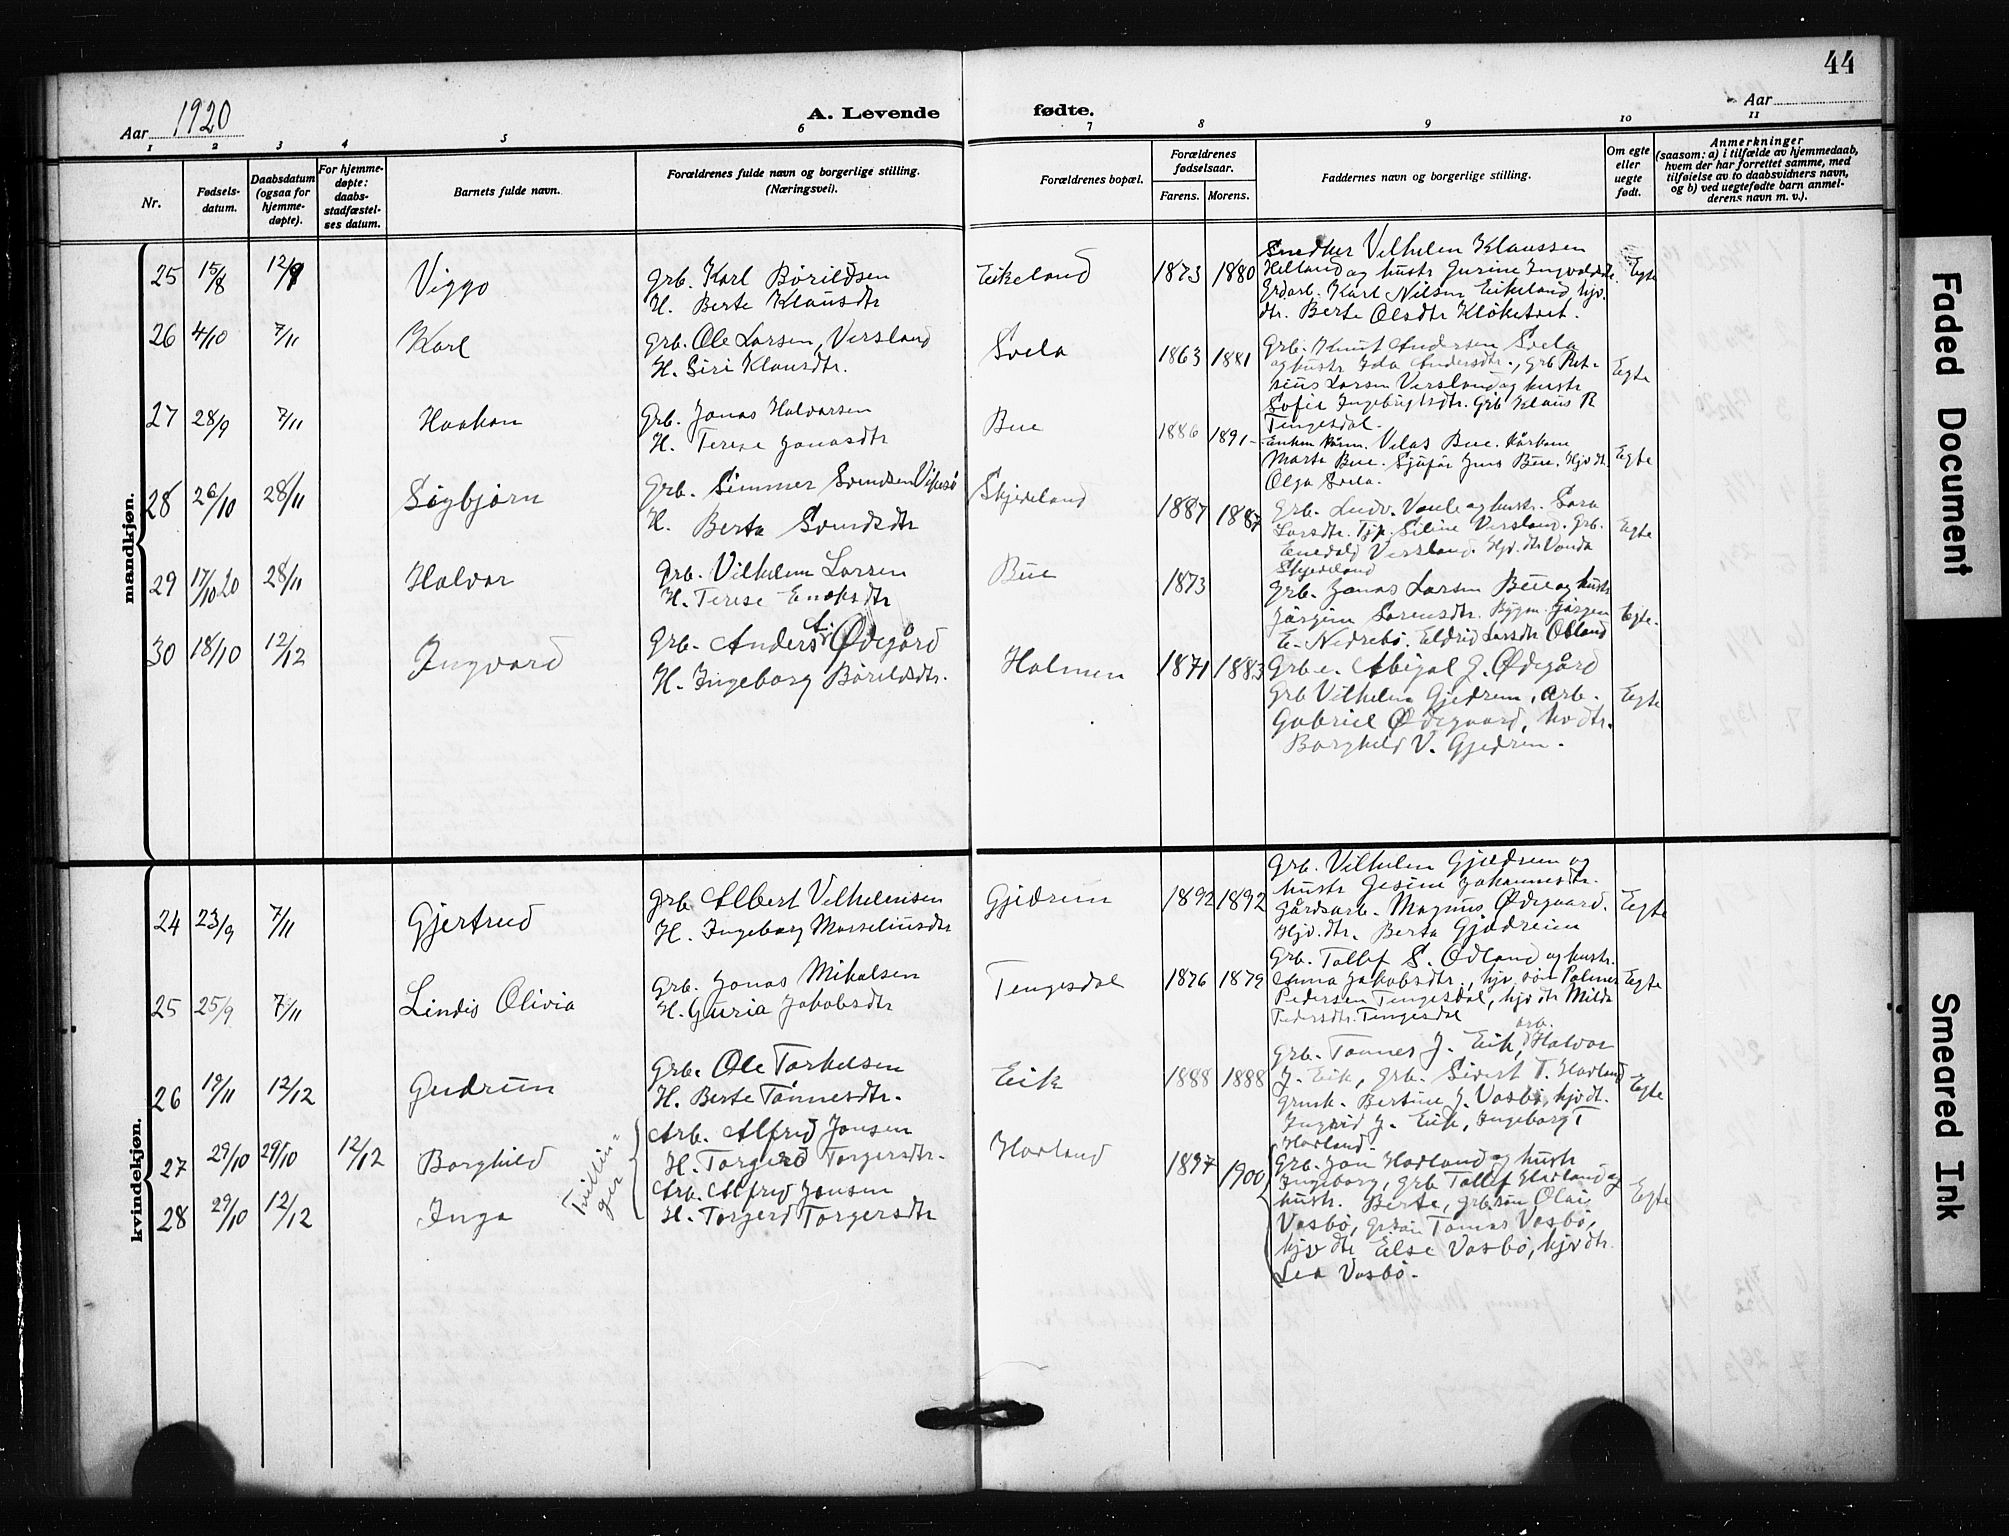 44
Aar 1920
A. Levende
fødte.
Aar
1 2 3 4 5 6 7 8 9 10 11
Nr.
Fødsels-
datum.
Daabsdatum
(ogsaa for
hjemme-
døpte).
For hjemme-
døpte:
daabs-
stadfæstel-
ses datum.
Barnets fulde navn.
Forældrenes fulde navn og borgerlige stilling.
(Næringsvei).
Forældrenes bopæl.
Forældrenes
fødselsaar.
Farens. Morens.
Faddernes navn og borgerlige stilling.
Om egte
eller
uegte
født.
Anmerkninger
(saasom: a) i tilfælde av hjemmedaab,
hvem der har forrettet samme, med
tilføielse av to daabsvidners navn,
og b) ved uegtefødte barn anmel-
derens navn m. v.).
mandkjøn.
25 15/8 12/9 Viggo
Grb. Karl Börildsen
H. Berte Klausdtr
Eikeland 1873 1880
Snedker Vilhelm Klaussen
Helland og hustr Gurine Ingvaldsdtr.
Grdarb. Karl Nilsen Eikeland, hjv.
dtr. Berte Olsdtr Klöketvet.
Egte
26 4/10 7/11 Karl
Grb. Ole Larsen, Versland
H. Siri Klausdtr.
Svela 1863 1881
Grb. Knut Andersen Svela
og hustr Ida Andersdtr., Grb Pet-
reus Larsen Versland og hustr
Sofie Ingebrigtsdtr. Grb Klaus R
Tengesdal.
Egte
27 28/9 7/11 Haakon
Grb. Jonas Halvorsen
H. Terese Jonasdtr
Bue 1886 1891-
Enkem Velas Bue.
Marta Bue. Sjuför Jens Bue. Hjv dt.
Olga Svela.
Egte
28 26/10 28/11 Sigbjörn
Grb. Simmer Svendsen Vikesö
H. Berta Svendsdtr
Skjeveland 1887 1887
Grb. Ludv. Vaule og hustr. Sara
Larsdtr. Tjp. Siline Versland. Grb.
Enevald Versland. Hjv. dtr Vanda
Skjeveland
Egte
29 17/10 20 28/11 Halvor
Grb. Vilhelm Larsen
H. Terese Enoksdtr
Bue 1873
Grb. Jonas Larsen Bue og hustr
Jörgine Sorensdtr. Bygm. Jörgen
E. Nedrebö. Eldrid Larsdtr Osland
Egte.
30 18/10 12/12 Ingvard
Grb. Anders A. Ödegård
H. Ingeborg Börildsdtr.
Holmen 1871 1883
Grb e. Abigal J. Ödegård
Grb Vilhelm Gjedrem, arb.
Gabriel Ödegaard, hv dtr.
Borghild V. Gjedrem.
Egte
kvindekjøn.
24 23/9 7/11 Gjertrud
Grb Albert Vilhelmsen
H. Ingeborg Masseliusdtr
Gjedrem 1892 1892
Grb. Vilhelm Gjedrem og
hustr Gesine Johannesdtr.
Gårdsarb. Magnus Ödegaard.
Hjv. dtr. Berta Gjedrem
Egte
25 25/9 7/11 Lindis Olivia
Grb. Jonas Mikalsen
H. Guria Jakobsdtr
Tengesdal 1876 1879
Grb. Tollef S. Ödland og hustr.
Anna Jakobsdtr., hjv. sön Palmer
Pedersen Tengesdal, hjv dtr Milda
Pedersdtr. Tengesdal
Egte
26 19/11 12/12 Gudrun
Grb. Ole Torkelsen
H. Berte Tönnesdtr.
Eik 1888 1888
Grb. Tönnes J. Eik, arb. Halvor
J. Eik, Grb. Sivert T. Havland
Grmk. Bertine J. Vasbö, hjv dt.
Ingrid J. Eik, Ingeborg T
Havland
Egte
27 29/10 29/10 12/12 Borghild
Tvillin-
ger
Arb. Alfred Jonsen
H. Torgerd Torgersdtr.
Havland 1897 1900
28 29/10 12/12 Inga
Arb. Alfred Jonsen
H. Torgerd Torgersdtr
Grb. Jon Havland og hustr
Ingeborg, Grb Tollef Havland og
hustr. Berte, Grb. sön Olai
Vasbö, Grb sön Tomas Vasbö,
hjv dtr Else Vasbö, hjv dtr.
Lea Vasbö.
Egte
Faded Document
Smeared Ink